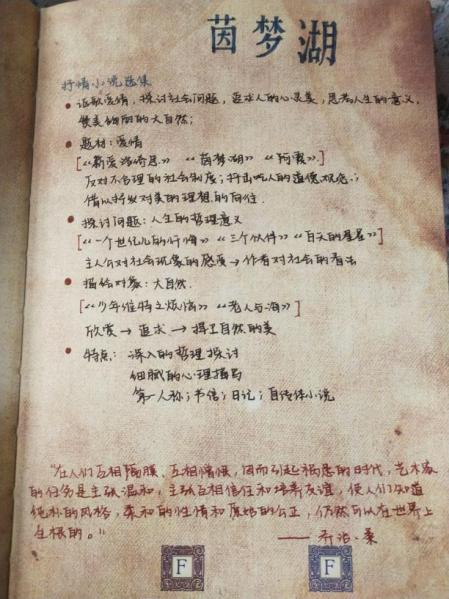 茵梦湖
抒情小说选集
• 讴歌爱情，探讨社会问题，追求人的心灵美，思考人生的意义，
赞美绚丽的大自然；
• 题材：爱情
[《新爱洛绮思》 《茵梦湖》 《阿霞》]
反对不合理的社会制度；抨击吃人的道德观念；
借以抒发对美的理想的向往.
• 探讨问题：人生的哲理意义
[《一个世纪儿的忏悔》 《三个伙伴》 《白天的星星》]
主人公对社会现象的感受→作者对社会的看法
• 描绘对象：大自然.
[《少年维特之烦恼》 《老人与海》]
欣赏 → 追求 → 大自然的美
• 特点： 深入的哲理探讨
细腻的心理描写
第一人称；书信；日记；自传体小说
"在人们互相隔膜、互相憎恨，因而引起祸患的时代，艺术家
的任务是主张温和，主张互相信任和培养友谊，使人们知道
纯朴的风格，柔和的性情和原始的公正，仍然可以在世界上
生根的。"
—— 乔治·桑
F F